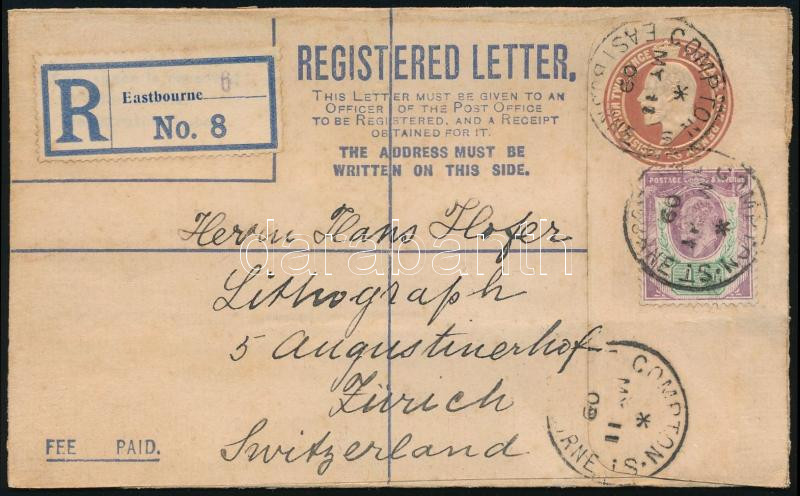 R
Eastbourne 6
No. 8
REGISTERED LETTER.
THIS LETTER MUST BE GIVEN TO AN
OFFICER OF THE POST OFFICE
TO BE REGISTERED, AND A RECEIPT
OBTAINED FOR IT.
THE ADDRESS MUST BE
WRITTEN ON THIS SIDE.
COMPTON ST. EASTBOURNE
MY 11
09
POSTAGE & REVENUE
COMPTON ST.
MY 11
09
Herrn Hans Hofer
Lithograph
5 Augustinerhof
Zürich
Switzerland
COMPTON ST.
MY 11
09
FEE PAID.
darabanth